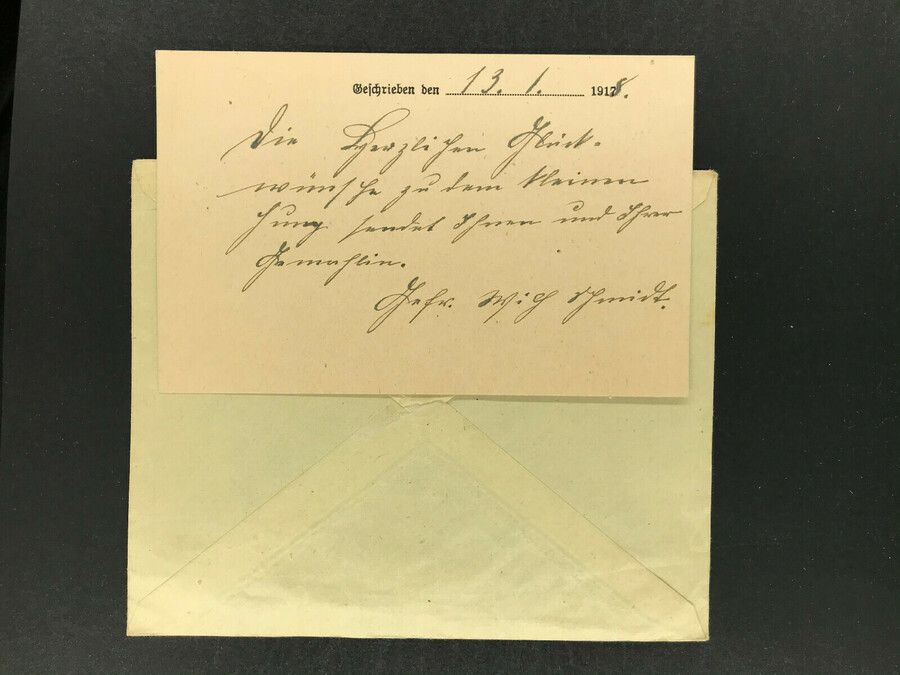 Geschrieben den 13. 1. 1918.
Die Herzlichen Glück-
wünsche zu dem kleinen
Jung sendet Ihnen und Ihrer
Gemahlin.
Gefr. Wilh Schmidt.